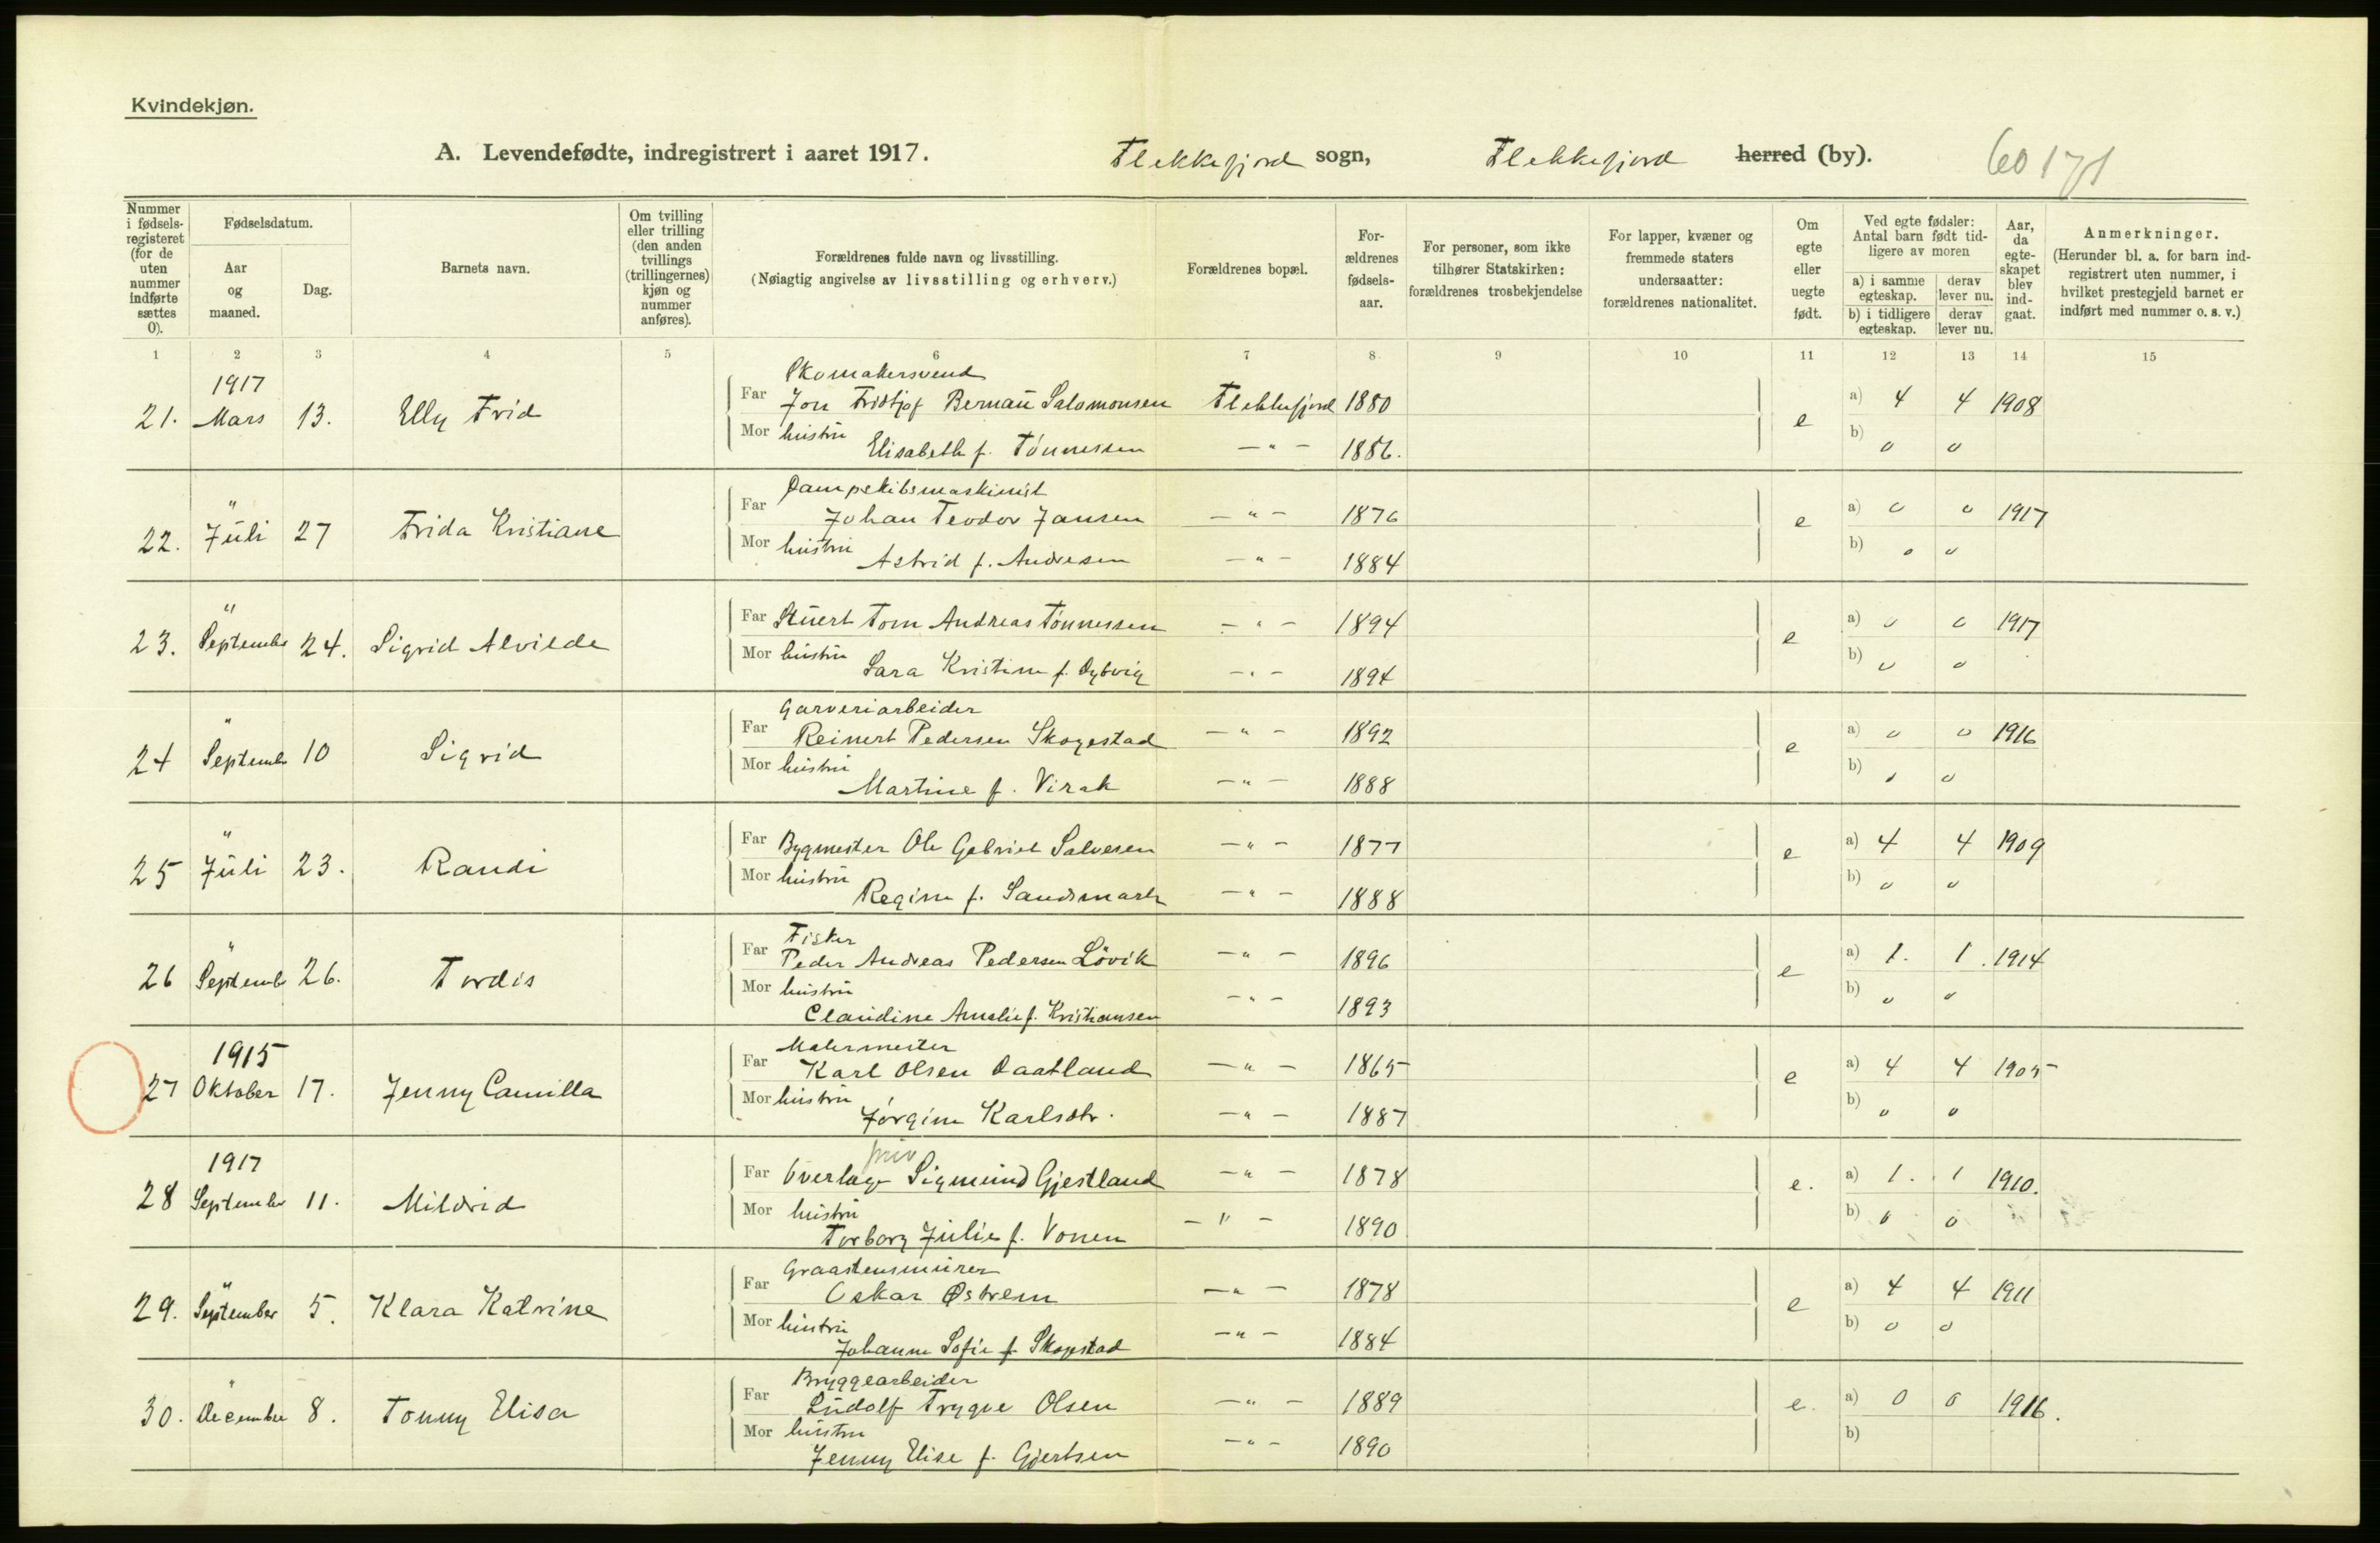 Kvindekjøn.
A. Levendefødte, indregistrert i aaret 1917. Flekkefjord sogn, Flekkefjord herred (by). 60171
Nummer i fødsels-registeret (for de uten nummer indførte sættes 0).
Fødselsdatum.
Aar og maaned.
Dag.
Barnets navn.
Om tvilling eller trilling (den anden tvillings (trillingernes) kjøn og nummer anføres).
Forældrenes fulde navn og livsstilling.
(Nøiagtig angivelse av livsstilling og erhverv.)
Forældrenes bopæl.
For-ældrenes fødsels-aar.
For personer, som ikke tilhører Statskirken: forældrenes trosbekjendelse
For lapper, kvæner og fremmede staters undersaatter: forældrenes nationalitet.
Om egte eller uegte født.
Ved egte fødsler: Antal barn født tid-ligere av moren
a) i samme egteskap. derav lever nu.
b) i tidligere egteskap. derav lever nu.
Aar, da egte-skapet blev ind-gaat.
Anmerkninger.
(Herunder bl. a. for barn ind-registrert uten nummer, i hvilket prestegjeld barnet er indført med nummer o. s. v.)
1 2 3 4 5 6 7 8 9 10 11 12 13 14 15
1917 Skomakersvend
21. Mars 13. Elly Frid Far Jon Fridtjof Bernau Salomonsen Flekkefjord 1880 e a) 4 4 1908
Mor hustru Elisabeth f. Tönnessen —"— 1886. b) 0 0
" Dampskibsmaskinist
22. Juli 27 Frida Kristiane Far Johan Teodor Jansen —"— 1876 e a) 0 0 1917
Mor hustru Astrid f. Andresen —"— 1884 b) 0 0
"
23. September 24. Sigrid Alvilde Far Stuert Tom Andreas Tönnessen —"— 1894 e a) 0 0 1917
Mor hustru Sara Kristine f. Dybvig —"— 1894 b) 0 0
" Garveriarbeider
24 Septemb 10 Sigrid Far Reinert Pedersen Skogestad —"— 1892 e a) 0 0 1916
Mor hustru Martine f. Virak —"— 1888 b) 0 0
"
25 Juli 23. Randi Far Bygmester Ole Gabriel Salvesen —"— 1877 e a) 4 4 1909
Mor hustru Regine f. Sandsmark —"— 1888 b) 0 0
" Fisker
26 Septemb 26. Tordis Far Peder Andreas Pedersen Lövik —"— 1896 e a) 1. 1. 1914
Mor hustru Claudine Amalie f. Kristiansen —"— 1893 b) 0 0
1915 Malermester
27 Oktober 17. Jenny Camilla Far Karl Olsen Daatland —"— 1865 e a) 4 4 1905
Mor hustru Jörgine Karlsdtr. —"— 1887 b) 0 0
1917 priv
28 September 11. Mildrid Far Overlæge Sigmund Gjestland —"— 1878 e. a) 1. 1 1910.
Mor hustru Torborg Julie f. Vonen —"— 1890 b) 0 0
" Graastensmurer
29. September 5. Klara Katrine Far Oskar Østrem —"— 1878 e a) 4 4 1911
Mor hustru Johanne Sofie f. Skogstad —"— 1884 b) 0 0
" Bryggearbeider
30. December 8. Tonny Elisa Far Ludolf Trygve Olsen —"— 1889 e. a) 0 0 1916.
Mor hustru Jenny Elise f. Gjertsen —"— 1890 b)